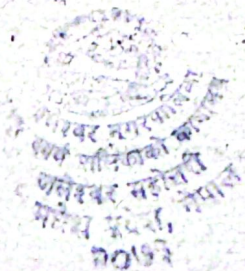 जलेश्वर नगरपालिका
पालिकाको कार्यालय
जलेश्वर महोत्तरी
मधेश प्रदेश, नेपाल
२०७३